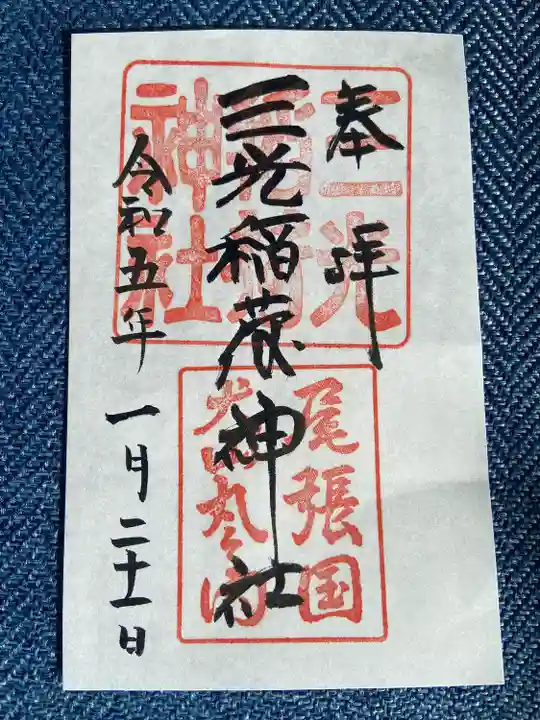 奉拝
三光稲荷神社
令和五年 一月二十一日
三光
稲荷
神社
尾張国
犬山丸之内